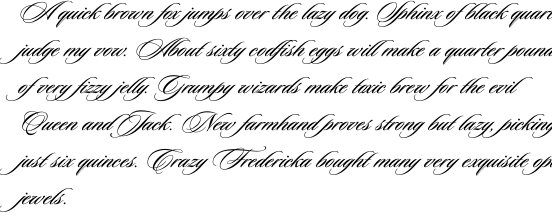 A quick brown fox jumps over the lazy dog. Sphinx of black quar
judge my vow. About sixty codfish eggs will make a quarter pound
of very fizzy jelly. Grumpy wizards make toxic brew for the evil
Queen and Jack. New farmhand proves strong but lazy, picking
just six quinces. Crazy Fredericka bought many very exquisite op
jewels.